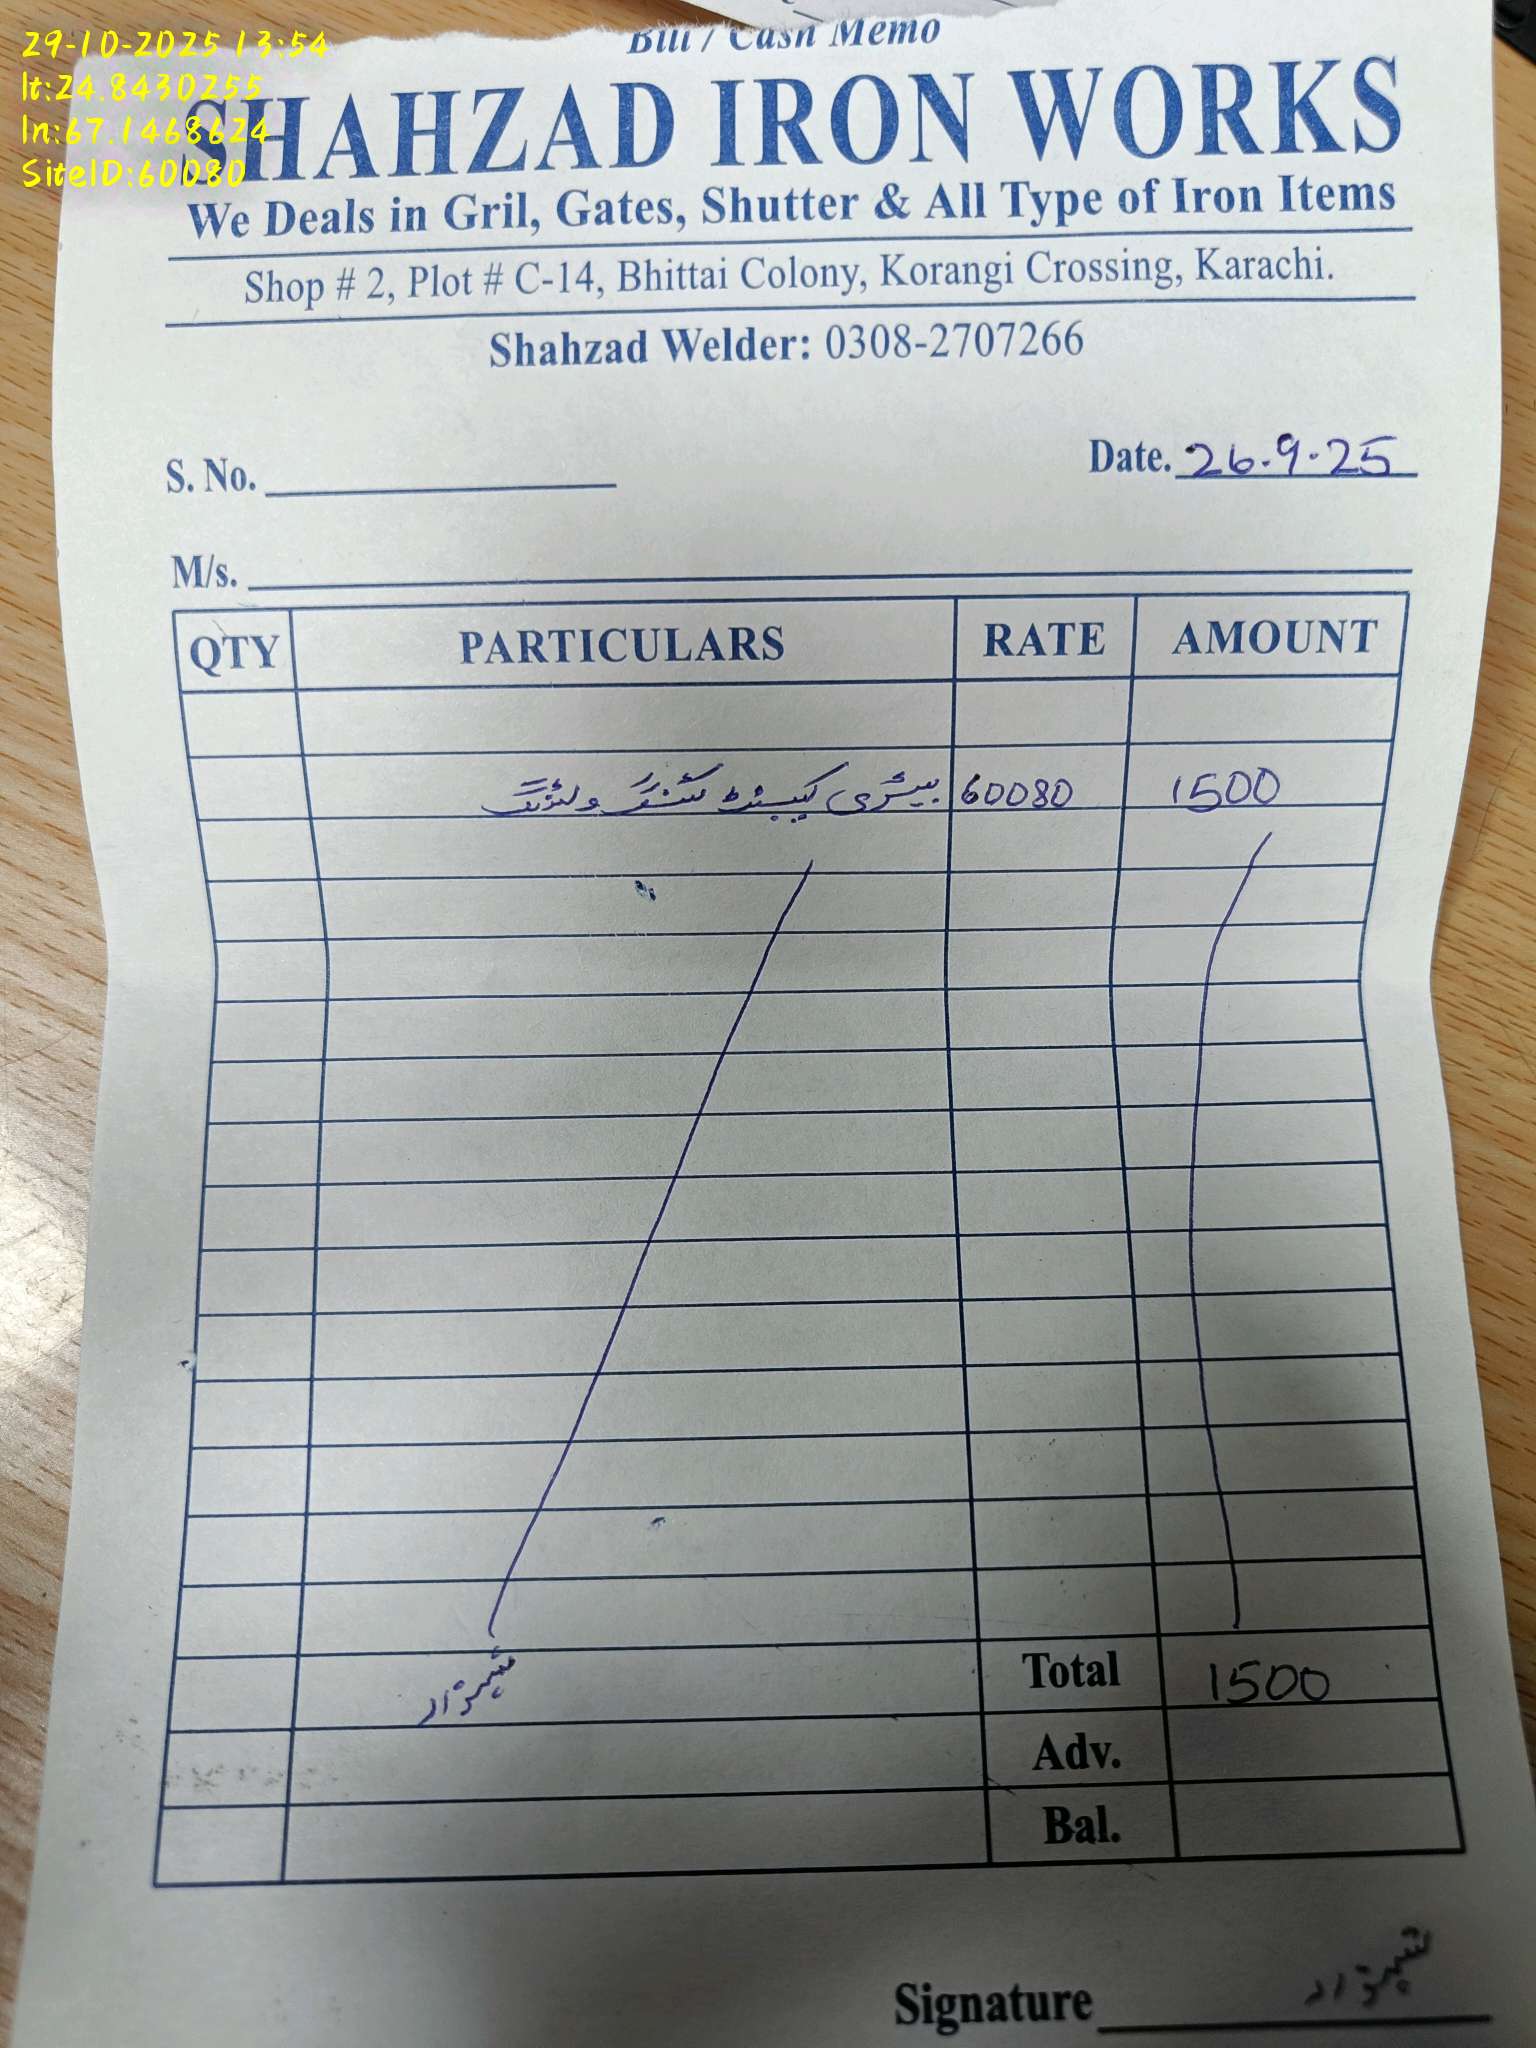 29-10-2025 13:54
lt:24.8430255
ln:67.1468624
SiteID:60080
Bill / Cash Memo
SHAHZAD IRON WORKS
We Deals in Gril, Gates, Shutter & All Type of Iron Items
Shop # 2, Plot # C-14, Bhittai Colony, Korangi Crossing, Karachi.
Shahzad Welder: 0308-2707266
S. No.
Date. 26.9.25
M/s.
QTY PARTICULARS RATE AMOUNT
بیٹری کیبنٹ ولڈنگ 60080 1500
Total 1500
Adv.
Bal.
Signature